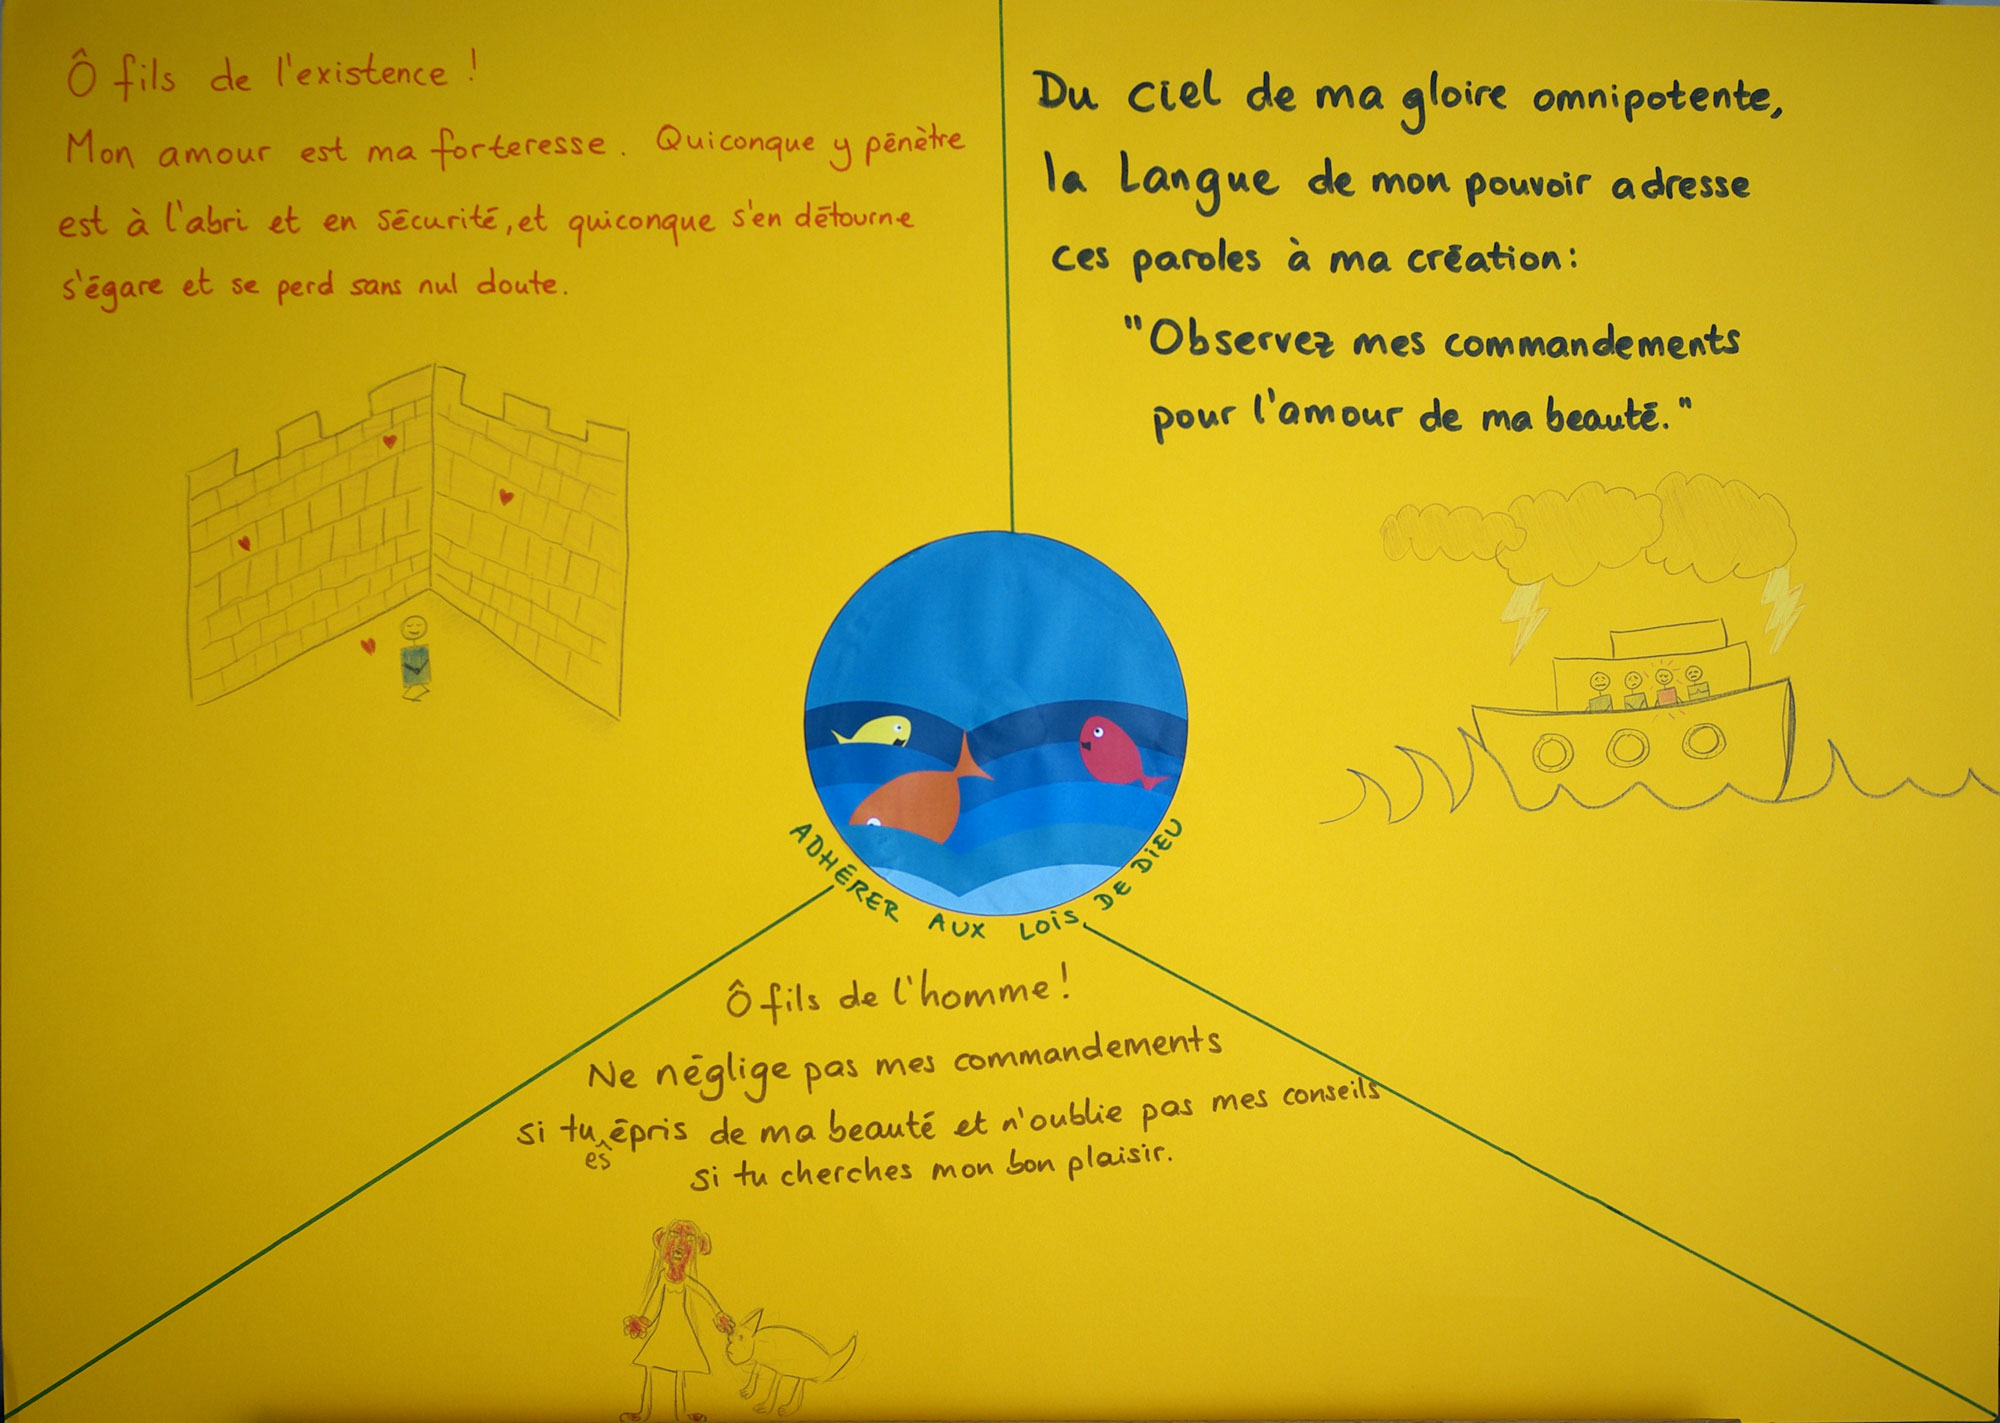 Ô fils de l'existence !
Mon amour est ma forteresse. Quiconque y pénètre
est à l'abri et en sécurité, et quiconque s'en détourne
s'égare et se perd sans nul doute.
Du ciel de ma gloire omnipotente,
la Langue de mon pouvoir adresse
ces paroles à ma création:
"Observez mes commandements
pour l'amour de ma beauté."
ADHÉRER AUX LOIS DE DIEU
Ô fils de l'homme !
Ne néglige pas mes commandements
si tu es épris de ma beauté et n'oublie pas mes conseils
si tu cherches mon bon plaisir.